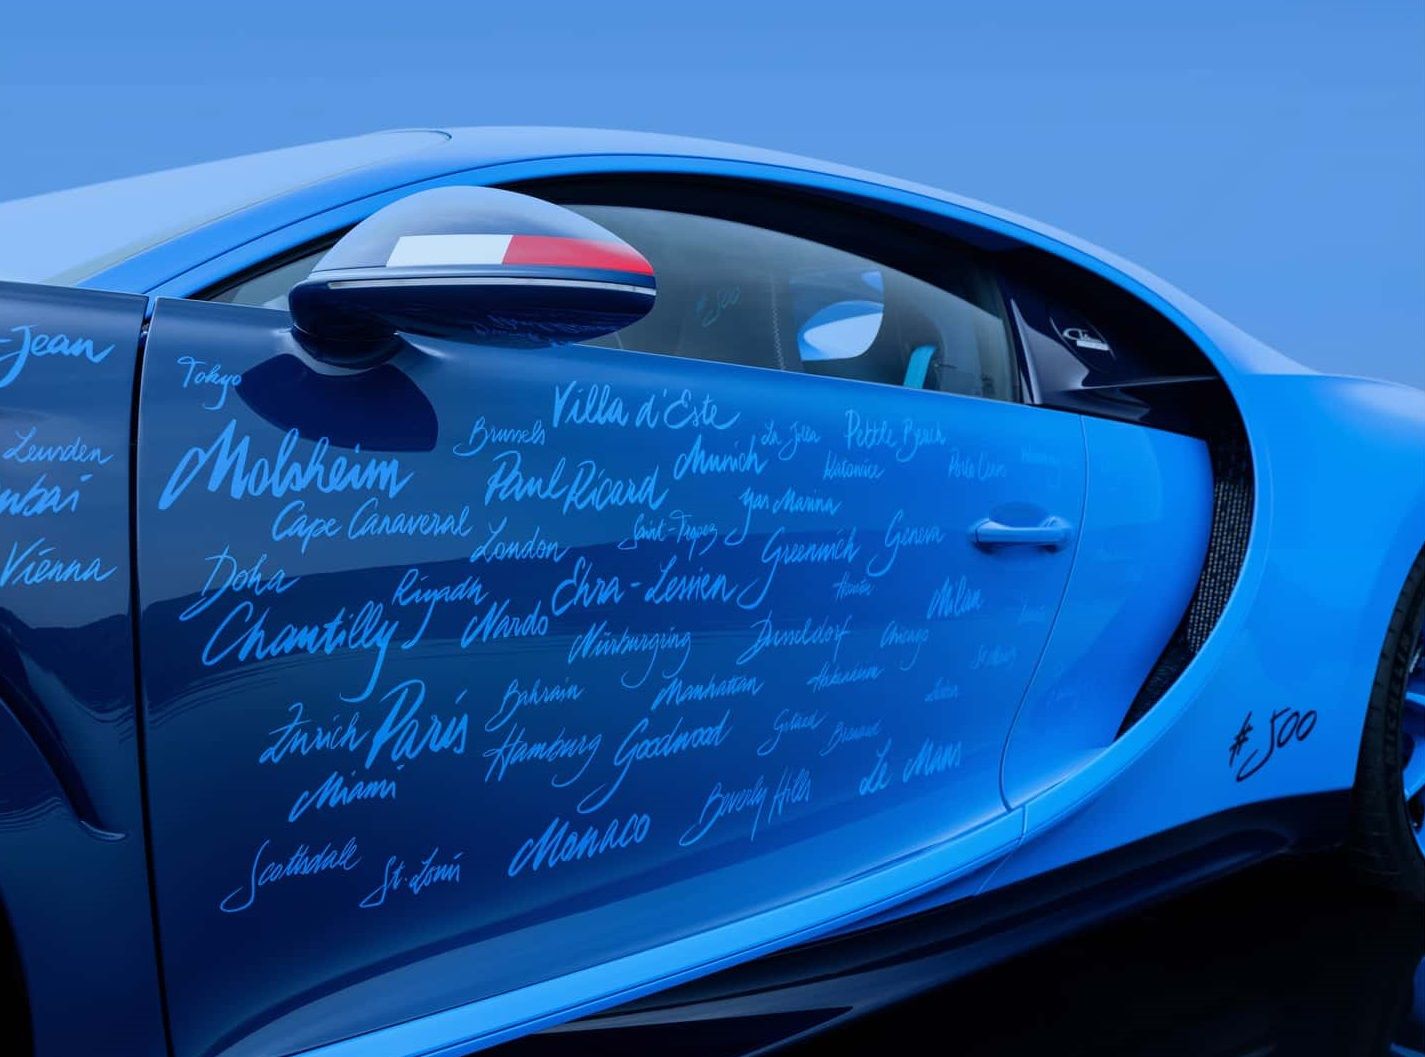 -Jean
Tokyo
Leusden
mbai
Vienna
Villa d'Este
Brussels
Molsheim
Paul Ricard
Munich
La Jolla
Pebble Beach
Katowice
Porto Cervo
Cape Canaveral
London
Saint-Tropez
Yas Marina
Greenwich
Geneva
Doha
Riyadh
Ehra-Lessien
Houston
Milan
Chantilly
Nardo
Nürburgring
Dusseldorf
Chicago
Zurich
Paris
Bahrain
Manhattan
Hamburg
Goodwood
Gstaad
Miami
Monaco
Beverly Hills
Le Mans
Scottsdale
St. Louis
#500
#500